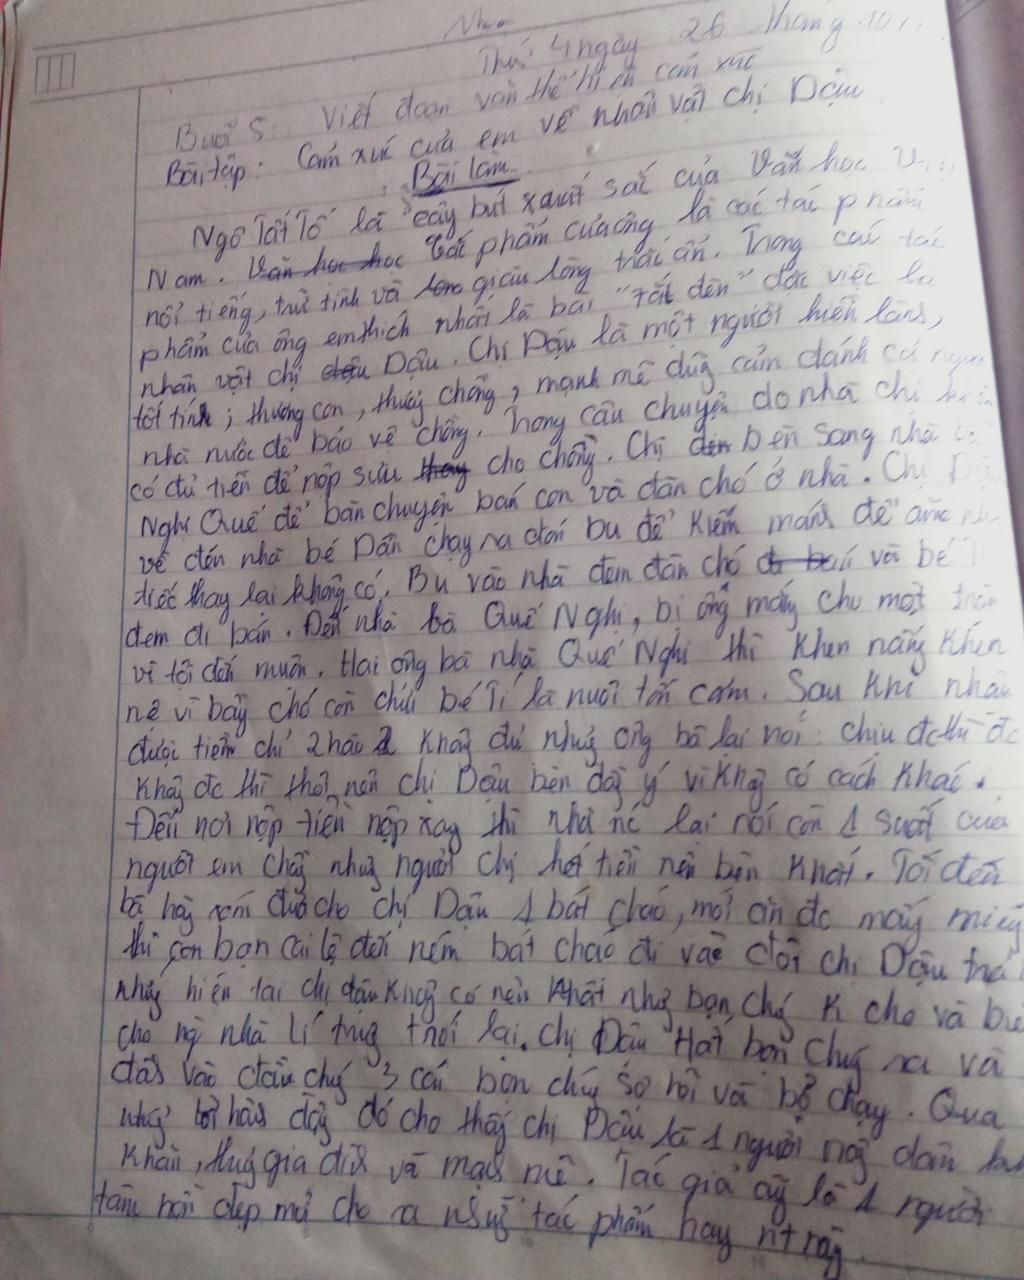 Thứ 4 ngày 26 tháng 10
Buổi 5: Viết đoạn văn thể hiện cảm xúc
Bài tập: Cảm xúc của em về nhân vật chị Dậu
Bài làm
Ngô Tất Tố là cây bút xuất sắc của Văn học
Nam. Văn học học Tác phẩm của ông là các tác phẩm
nổi tiếng, trữ tình và giàu lòng trắc ẩn. Trong các tác
phẩm của ông em thích nhất là bài "tắt đèn" đặc việc là
nhân vật chị dậu Dậu. Chị Dậu là một người hiền lành,
tốt tính, thương con, thương chồng, mạnh mẽ dũng cảm đánh cả người
nhà nước để bảo vệ chồng. Trong câu chuyện do nhà chị
có đủ tiền để nộp sưu thay cho chồng. Chị đến bèn sang nhà
Nghị Quế để bàn chuyện bán con và đàn chó ở nhà. Chị
về đến nhà bé Dần chạy ra đón bu để kiếm mang để ăn
tiếc thay lại không có. Bu vào nhà đem đàn chó đi bán và bé
đem đi bán. Đến nhà bà Quế Nghị, bị ông mắng cho một trận
vì tội đến muộn. Hai ông bà nhà Quế Nghị thì khen nâng khen
nê vì bầy chó còn chửi bé Tí là nuôi tốn cơm. Sau khi nhận
được tiền chỉ 2 hào 2 không đủ nhưng ông bà lại nói: chịu đc thì đc
không đc thì thôi, nên chị Dậu bèn đồng ý vì không có cách khác.
Đến nơi nộp tiền nộp xong thì nhà nc lại nói còn 1 suất của
người em chồng nhưng người chị hết tiền nên bèn khất. Tối đến
bà hàng xóm đưa cho chị Dậu 1 bát cháo, mới ăn đc mấy miếng
thì con bọn cai lệ đến ném bát cháo đi và đòi chị Dậu trả
nhưng hiện tại chị dậu không có nên khất nhưng bọn chúng k cho và
cho ng nhà lí trưởng trói lại. Chị Dậu Hất bọn chúng ra và
đấm vào đầu chúng 3 cái bọn chúng sợ hãi và bỏ chạy. Qua
những hành động đó cho thấy chị Dậu là 1 người nông dân
khăn, thương gia đình và mạnh mẽ. Tác giả cũng là 1 người
tâm hồn đẹp mới cho ra những tác phẩm hay nt này.